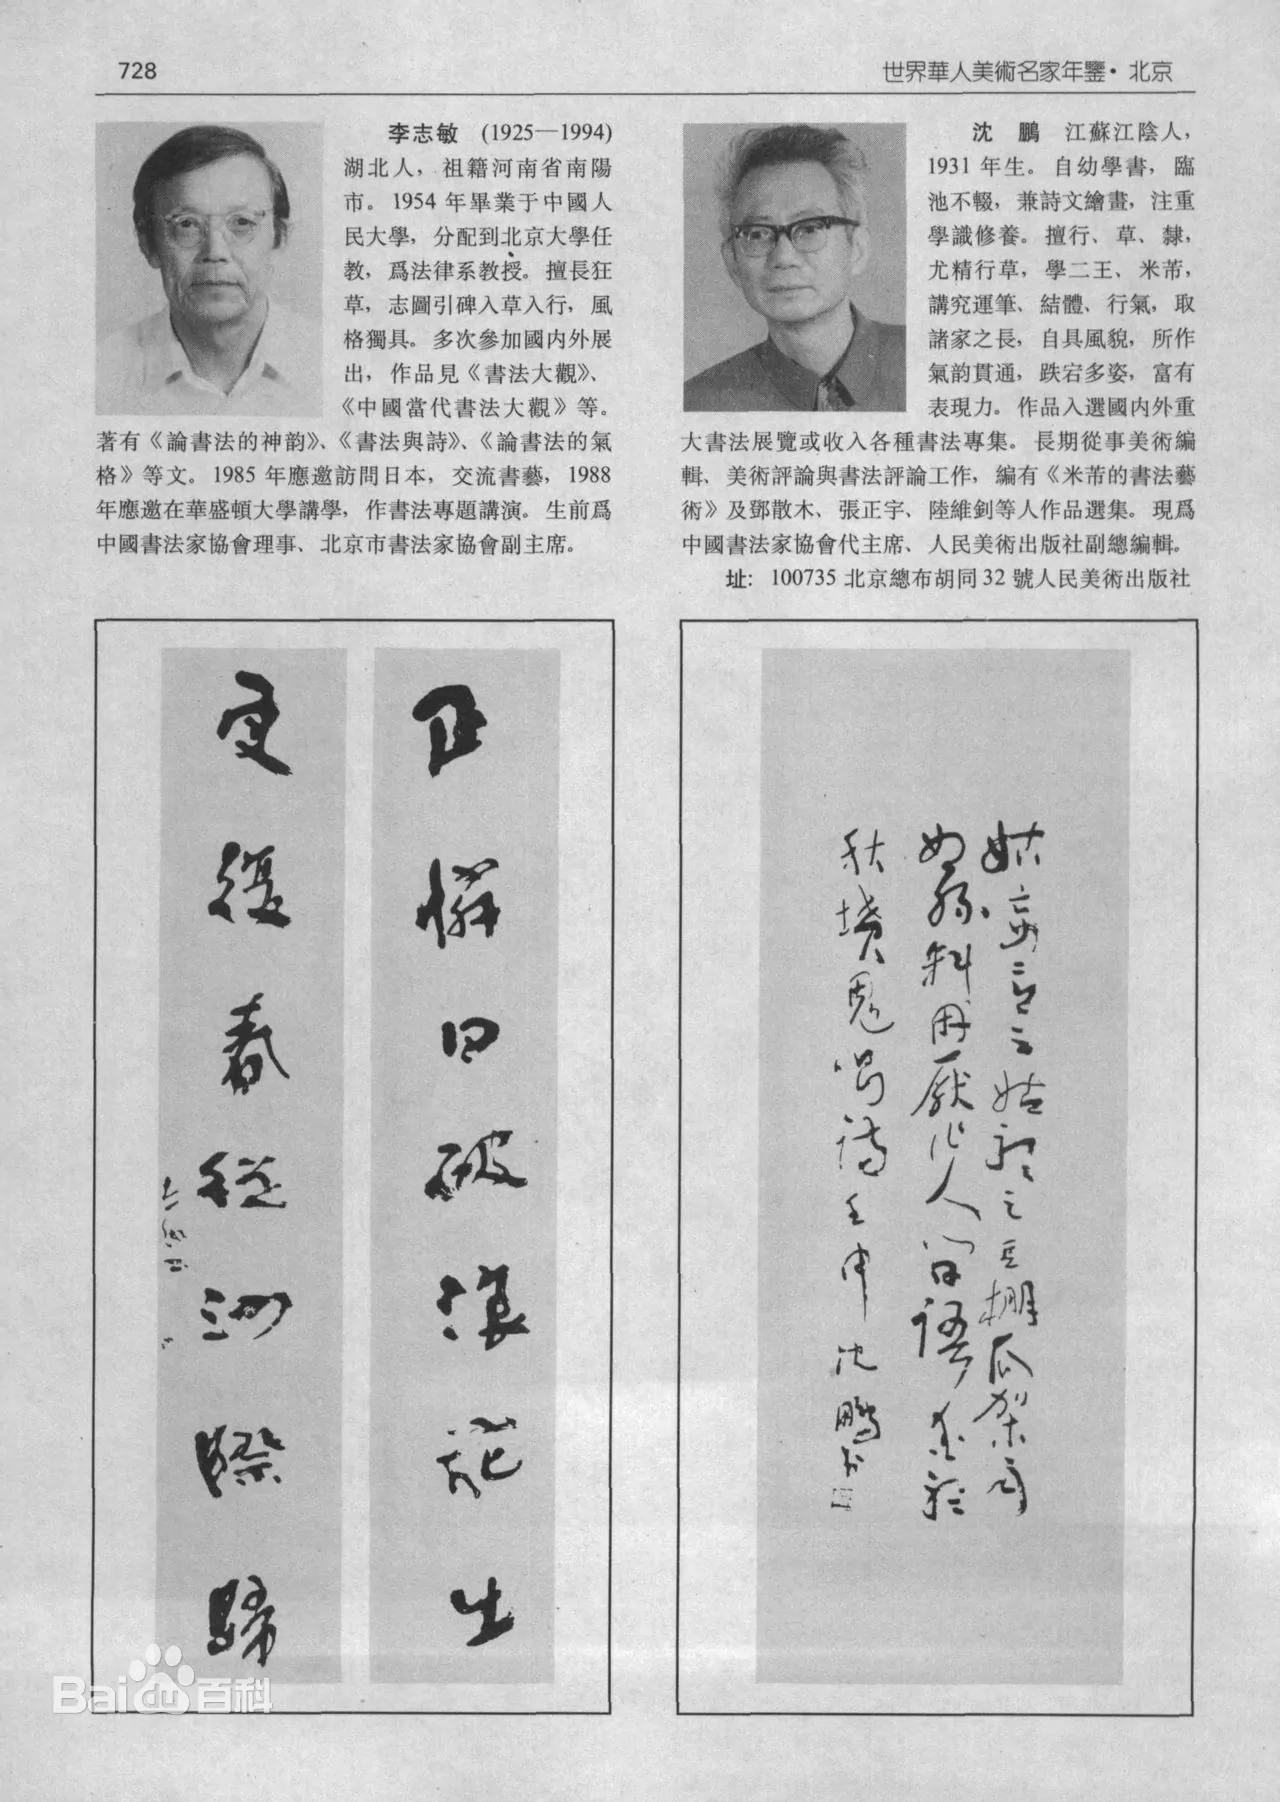 728
世界華人美術名家年鑒·北京
李志敏 (1925—1994)
湖北人，祖籍河南省南陽
市。1954 年畢業于中國人
民大學，分配到北京大學任
教，爲法律系教授。擅長狂
草，志圖引碑入草入行，風
格獨具。多次參加國内外展
出，作品見《書法大觀》、
《中國當代書法大觀》等。
著有《論書法的神韵》、《書法與詩》、《論書法的氣
格》等文。1985 年應邀訪問日本，交流書藝，1988
年應邀在華盛頓大學講學，作書法專題講演。生前爲
中國書法家協會理事、北京市書法家協會副主席。
沈 鵬 江蘇江陰人，
1931 年生。自幼學書，臨
池不輟，兼詩文繪畫，注重
學識修養。擅行、草、隸，
尤精行草，學二王、米芾，
講究運筆、結體、行氣，取
諸家之長，自具風貌，所作
氣韵貫通，跌宕多姿，富有
表現力。作品入選國内外重
大書法展覽或收入各種書法專集。長期從事美術編
輯、美術評論與書法評論工作，編有《米芾的書法藝
術》及鄧散木、張正宇、陸維釗等人作品選集。現爲
中國書法家協會代主席、人民美術出版社副總編輯。
址：100735 北京總布胡同 32 號人民美術出版社
正憐日破浪花出
更復春從沙際歸
姑妄言之姑聽之豆棚瓜架雨
如絲料因厭作人間語愛聽
秋墳鬼唱詩壬申沈鵬書
Baidu百科